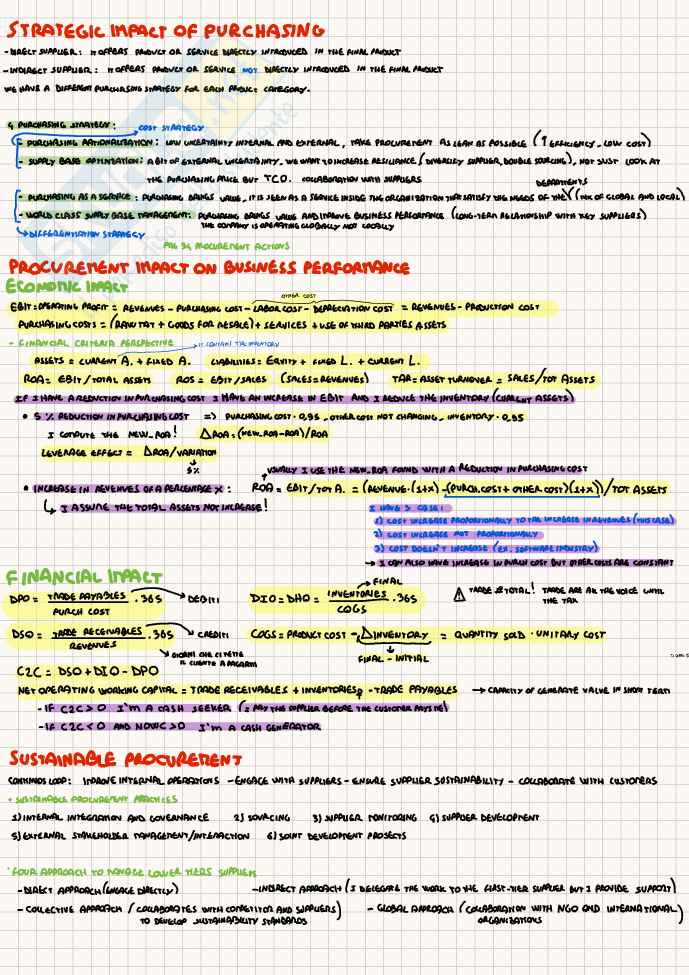 STRATEGIC IMPACT OF PURCHASING
- DIRECT SUPPLIER: IT OFFERS PRODUCT OR SERVICE DIRECTLY INTRODUCED IN THE FINAL PRODUCT
- INDIRECT SUPPLIER: IT OFFERS PRODUCT OR SERVICE NOT DIRECTLY INTRODUCED IN THE FINAL PRODUCT
WE HAVE A DIFFERENT PURCHASING STRATEGY FOR EACH PRODUCT CATEGORY.
4 PURCHASING STRATEGY:
COST STRATEGY
- PURCHASING RATIONALIZATION: LOW UNCERTAINTY INTERNAL AND EXTERNAL, TAKE PROCUREMENT AS LEAN AS POSSIBLE (↑ EFFICIENCY, LOW COST)
- SUPPLY BASE OPTIMISATION: A BIT OF EXTERNAL UNCERTAINTY. WE WANT TO INCREASE RESILIENCE (DIVERSIFY SUPPLIER, DOUBLE SOURCING), NOT JUST LOOK AT
THE PURCHASING PRICE BUT TCO. COLLABORATION WITH SUPPLIERS
DEPARTMENTS
- PURCHASING AS A SERVICE: PURCHASING BRINGS VALUE, IT IS SEEN AS A SERVICE INSIDE THE ORGANIZATION THAT SATISFY THE NEEDS OF THE (MIX OF GLOBAL AND LOCAL)
- WORLD CLASS SUPPLY BASE MANAGEMENT: PURCHASING BRINGS VALUE AND IMPROVE BUSINESS PERFORMANCE (LONG-TERM RELATIONSHIP WITH KEY SUPPLIERS)
THE COMPANY IS OPERATING GLOBALLY NOT LOCALLY
↳ DIFFERENTIATION STRATEGY
PAG 34 PROCUREMENT ACTIONS
PROCUREMENT IMPACT ON BUSINESS PERFORMANCE
ECONOMIC IMPACT
OTHER COST
EBIT=OPERATING PROFIT = REVENUES - PURCHASING COST - LABOR COST - DEPRECIATION COST = REVENUES - PRODUCTION COST
PURCHASING COSTS = (RAW MAT + GOODS FOR RESALE) + SERVICES + USE OF THIRD PARTIES ASSETS
- FINANCIAL CRITERIA PERSPECTIVE
IT CONTAINT THE INVENTORY
ASSETS = CURRENT A. + FIXED A. LIABILITIES = EQUITY + FIXED L. + CURRENT L.
ROA = EBIT/TOTAL ASSETS ROS = EBIT/SALES (SALES=REVENUES) TAR=ASSET TURNOVER = SALES/TOT ASSETS
IF I HAVE A REDUCTION IN PURCHASING COST I HAVE AN INCREASE IN EBIT AND I REDUCE THE INVENTORY (CURRENT ASSETS)
• 5 % REDUCTION IN PURCHASING COST => PURCHASING COST · 0,95 , OTHER COST NOT CHANGING, INVENTORY · 0,95
I COMPUTE THE NEW_ROA! ΔROA = (NEW_ROA-ROA)/ROA
LEVERAGE EFFECT = ΔROA/VARIATION
5%
USUALLY I USE THE NEW_ROA FOUND WITH A REDUCTION IN PURCHASING COST
• INCREASE IN REVENUES OF A PERCENTAGE X: ROA = EBIT/TOT A. = (REVENUE·(1+X) - (PURCH.COST + OTHER COST)(1+X))/TOT ASSETS
↳ I ASSUME THE TOTAL ASSETS NOT INCREASE!
I HAVE 3 CASE:
1) COST INCREASE PROPORTIONALLY TO THE INCREASE IN REVENUES (THIS CASE)
2) COST INCREASE NOT PROPORTIONALLY
3) COST DOESN'T INCREASE (ES. SOFTWARE INDUSTRY)
→ I CAN ALSO HAVE INCREASE IN PURCH COST BUT OTHER COSTS ARE CONSTANT
FINANCIAL IMPACT
FINAL
DPO = TRADE PAYABLES / PURCH COST · 365 → DEBITI DIO = DHO = INVENTORIES / COGS · 365
⚠ TRADE ≠ TOTAL! TRADE ARE ALL THE VOICE UNTIL
THE TAX
DSO = TRADE RECEIVABLES / REVENUES · 365 → CREDITI COGS = PRODUCT COST - ΔINVENTORY = QUANTITY SOLD · UNITARY COST
GIORNI CHE CI METTE
IL CLIENTE A PAGARMI
FINAL - INITIAL
C2C = DSO + DIO - DPO
NET OPERATING WORKING CAPITAL = TRADE RECEIVABLES + INVENTORIES - TRADE PAYABLES → CAPACITY OF GENERATE VALUE IN SHORT TERM
- IF C2C > 0 I'M A CASH SEEKER (I PAY THE SUPPLIER BEFORE THE CUSTOMER PAYS ME)
- IF C2C < 0 AND NOWC > 0 I'M A CASH GENERATOR
SUSTAINABLE PROCUREMENT
CONTINOUS LOOP: IMPROVE INTERNAL OPERATIONS - ENGAGE WITH SUPPLIERS - ENSURE SUPPLIER SUSTAINABILITY - COLLABORATE WITH CUSTOMERS
• SUSTAINABLE PROCUREMENT PRACTICES
1) INTERNAL INTEGRATION AND GOVERNANCE 2) SOURCING 3) SUPPLIER MONITORING 4) SUPPLIER DEVELOPMENT
5) EXTERNAL STAKEHOLDER MANAGEMENT/INTERACTION 6) JOINT DEVELOPMENT PROJECTS
• FOUR APPROACH TO MANAGE LOWER TIERS SUPPLIERS
- DIRECT APPROACH (ENGAGE DIRECTLY) - INDIRECT APPROACH (I DELEGATE THE WORK TO THE FIRST-TIER SUPPLIER BUT I PROVIDE SUPPORT)
- COLLECTIVE APPROACH (COLLABORATES WITH COMPETITOR AND SUPPLIERS) - GLOBAL APPROACH (COLLABORATION WITH NGO AND INTERNATIONAL)
TO DEVELOP SUSTAINABILITY STANDARDS ORGANIZATIONS